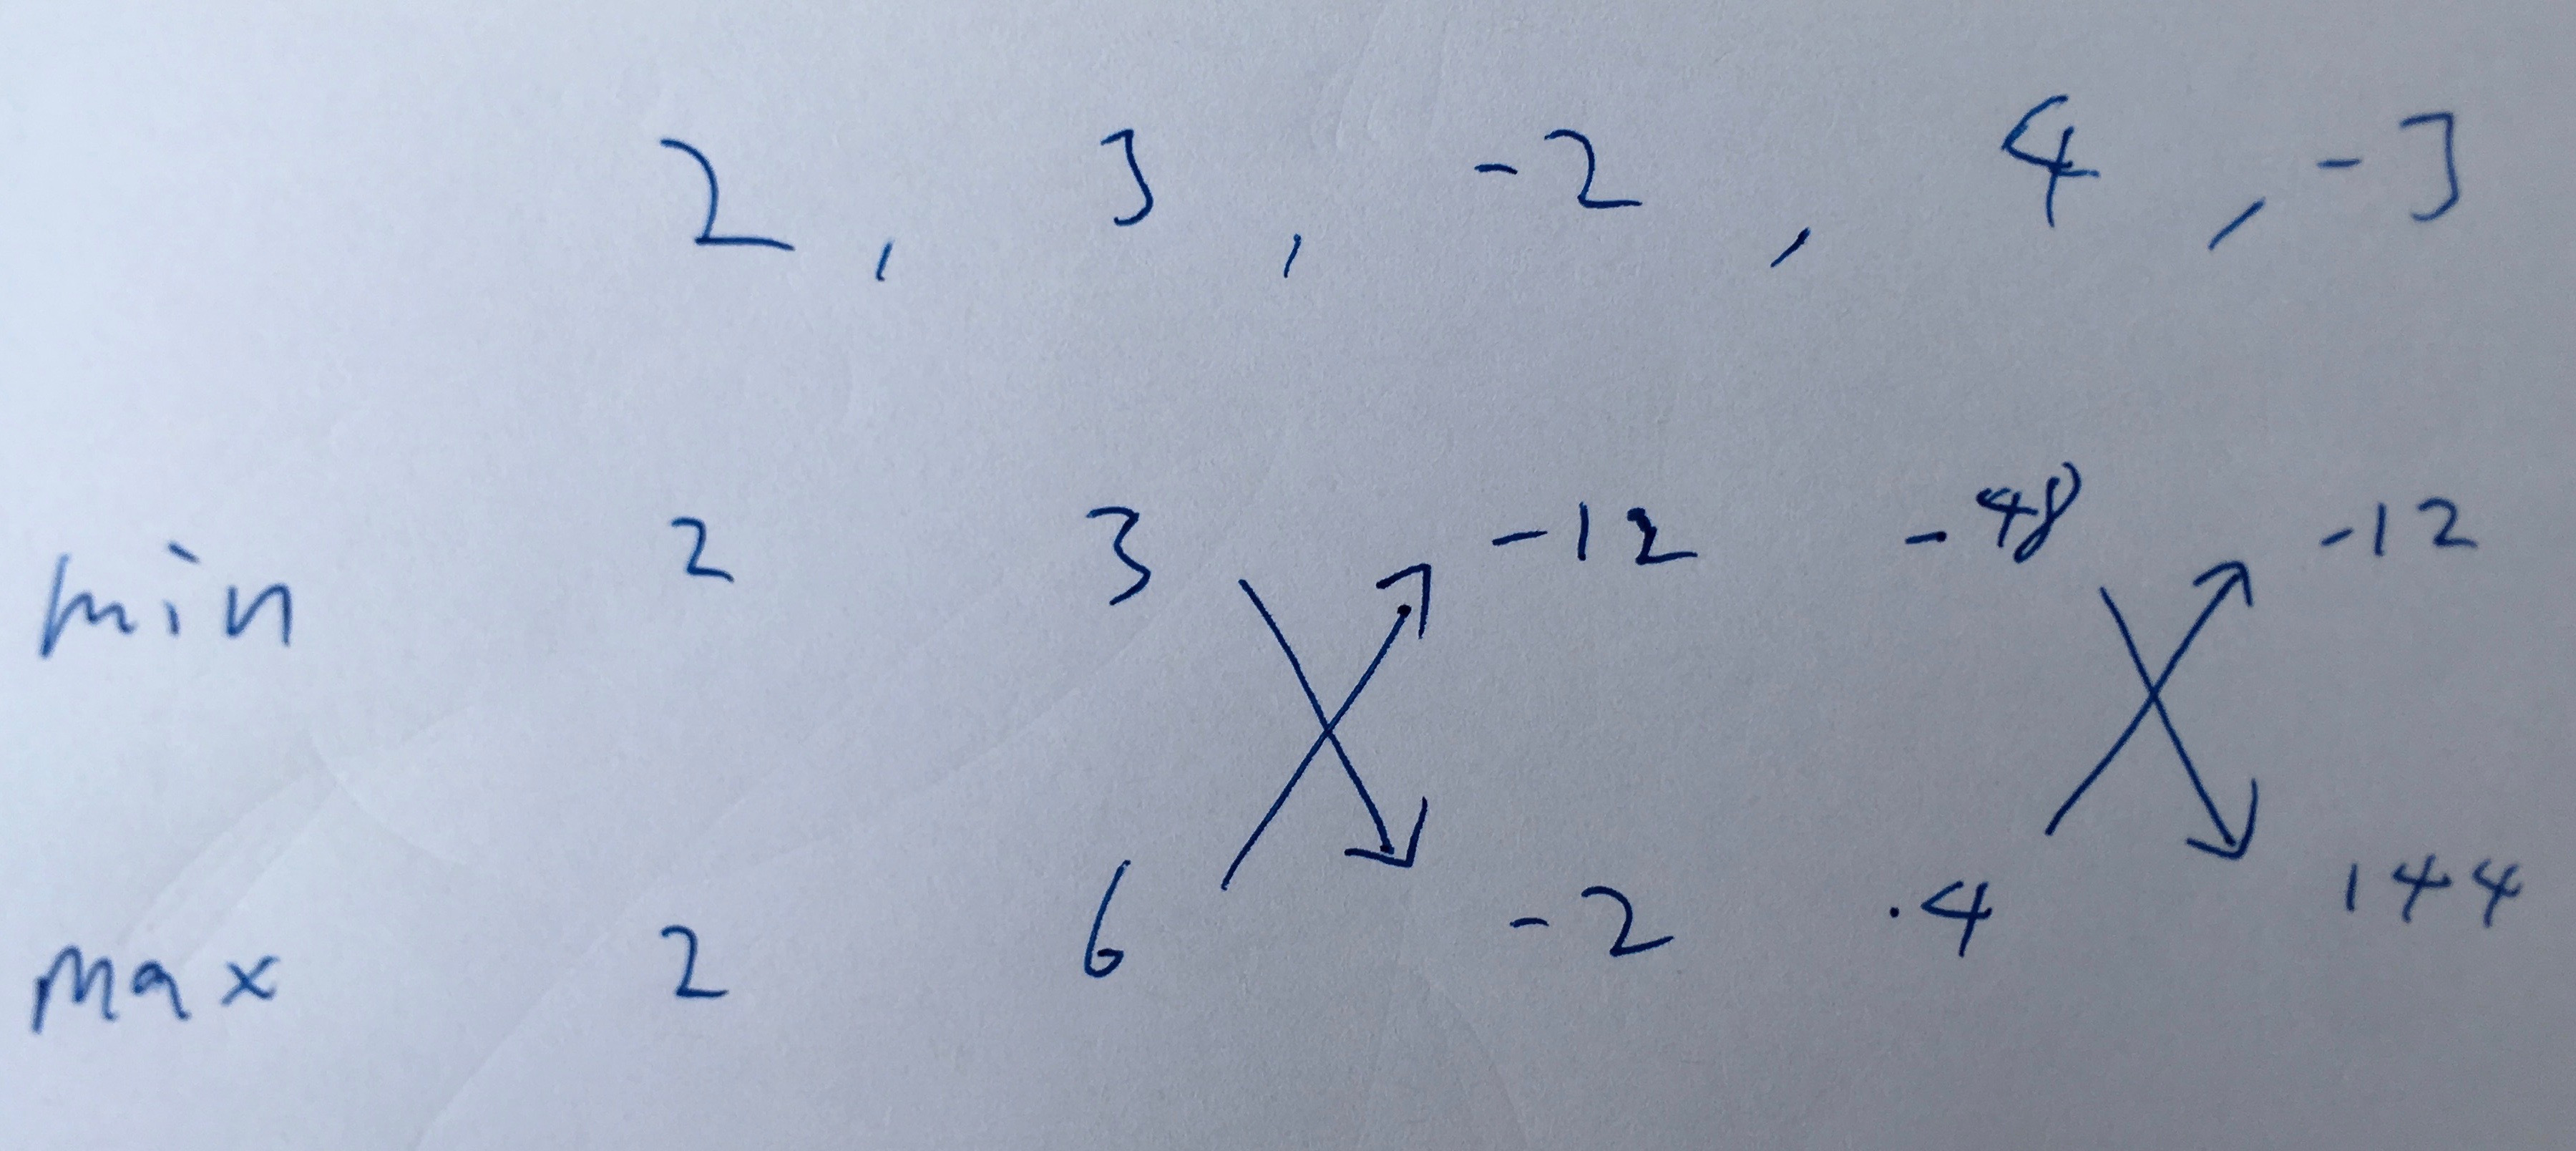 2, 3, -2, 4, -3
min 2 3 -12 -48 -12
max 2 6 -2 .4 144